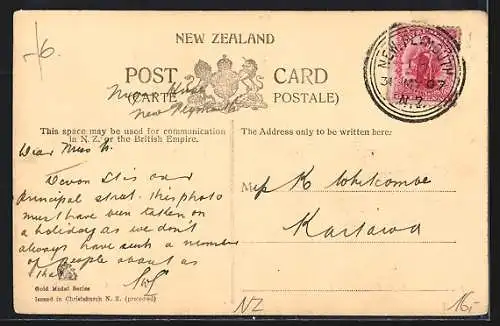 -/6.
NEW ZEALAND
POST CARD
(CARTE POSTALE)
New Plymouth
NEW PLYMOUTH
N.Z.
This space may be used for communication
in N.Z. or the British Empire.
The Address only to be written here:
Dear Miss W.
Devon St is our
principal street. This photo
must have been taken on
a holiday as we don't
always have such a number
of people about as
this
Miss K Whitcombe
Kaitawa
Gold Medal Series
Issued in Christchurch N. Z. (protected)
NZ
16,-